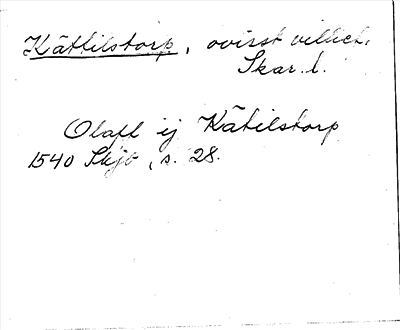 Kättilstorp, ovisst vilket.
Skar. l.
Olaff ij Kätilstorp
1540 Skjb, s. 28.